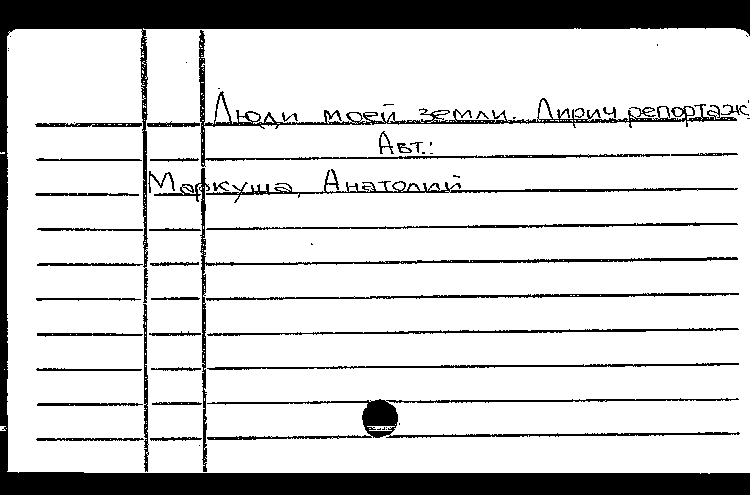 Люди моей земли. Лирич репортаж
Авт.:
Маркуша, Анатолий